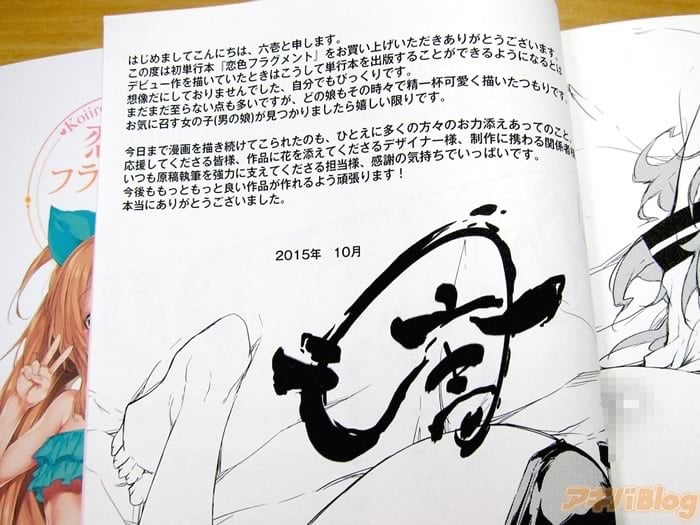 はじめましてこんにちは、六壱と申します。
この度は初単行本『恋色フラグメント』をお買い上げいただきありがとうございます。
デビュー作を描いていたときはこうして単行本を出版することができるようになるとは
想像だにしておりませんでした、自分でもびっくりです。
まだまだ至らない点も多いですが、どの娘もその時々で精一杯可愛く描いたつもりです。
お気に召す女の子(男の娘)が見つかりましたら嬉しい限りです。
今日まで漫画を描き続けてこられたのも、ひとえに多くの方々のお力添えあってのこと。
応援してくださる皆様、作品に花を添えてくださるデザイナー様、制作に携わる関係者様
いつも原稿執筆を強力に支えてくださる担当様、感謝の気持ちでいっぱいです。
今後ももっともっと良い作品が作れるよう頑張ります！
本当にありがとうございました。
2015年 10月
六壱
Koiiro
恋
フラ
アキバBlog